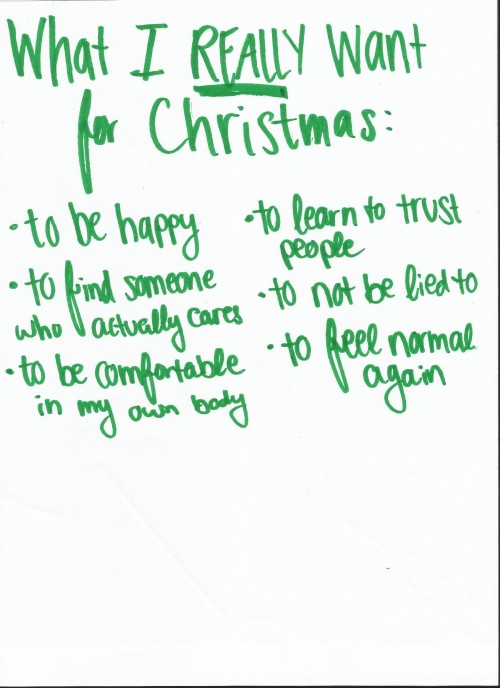 What I REALLY Want
for Christmas:
• to be happy
• to find someone
who actually cares
• to be comfortable
in my own body
• to learn to trust
people
• to not be lied to
• to feel normal
again